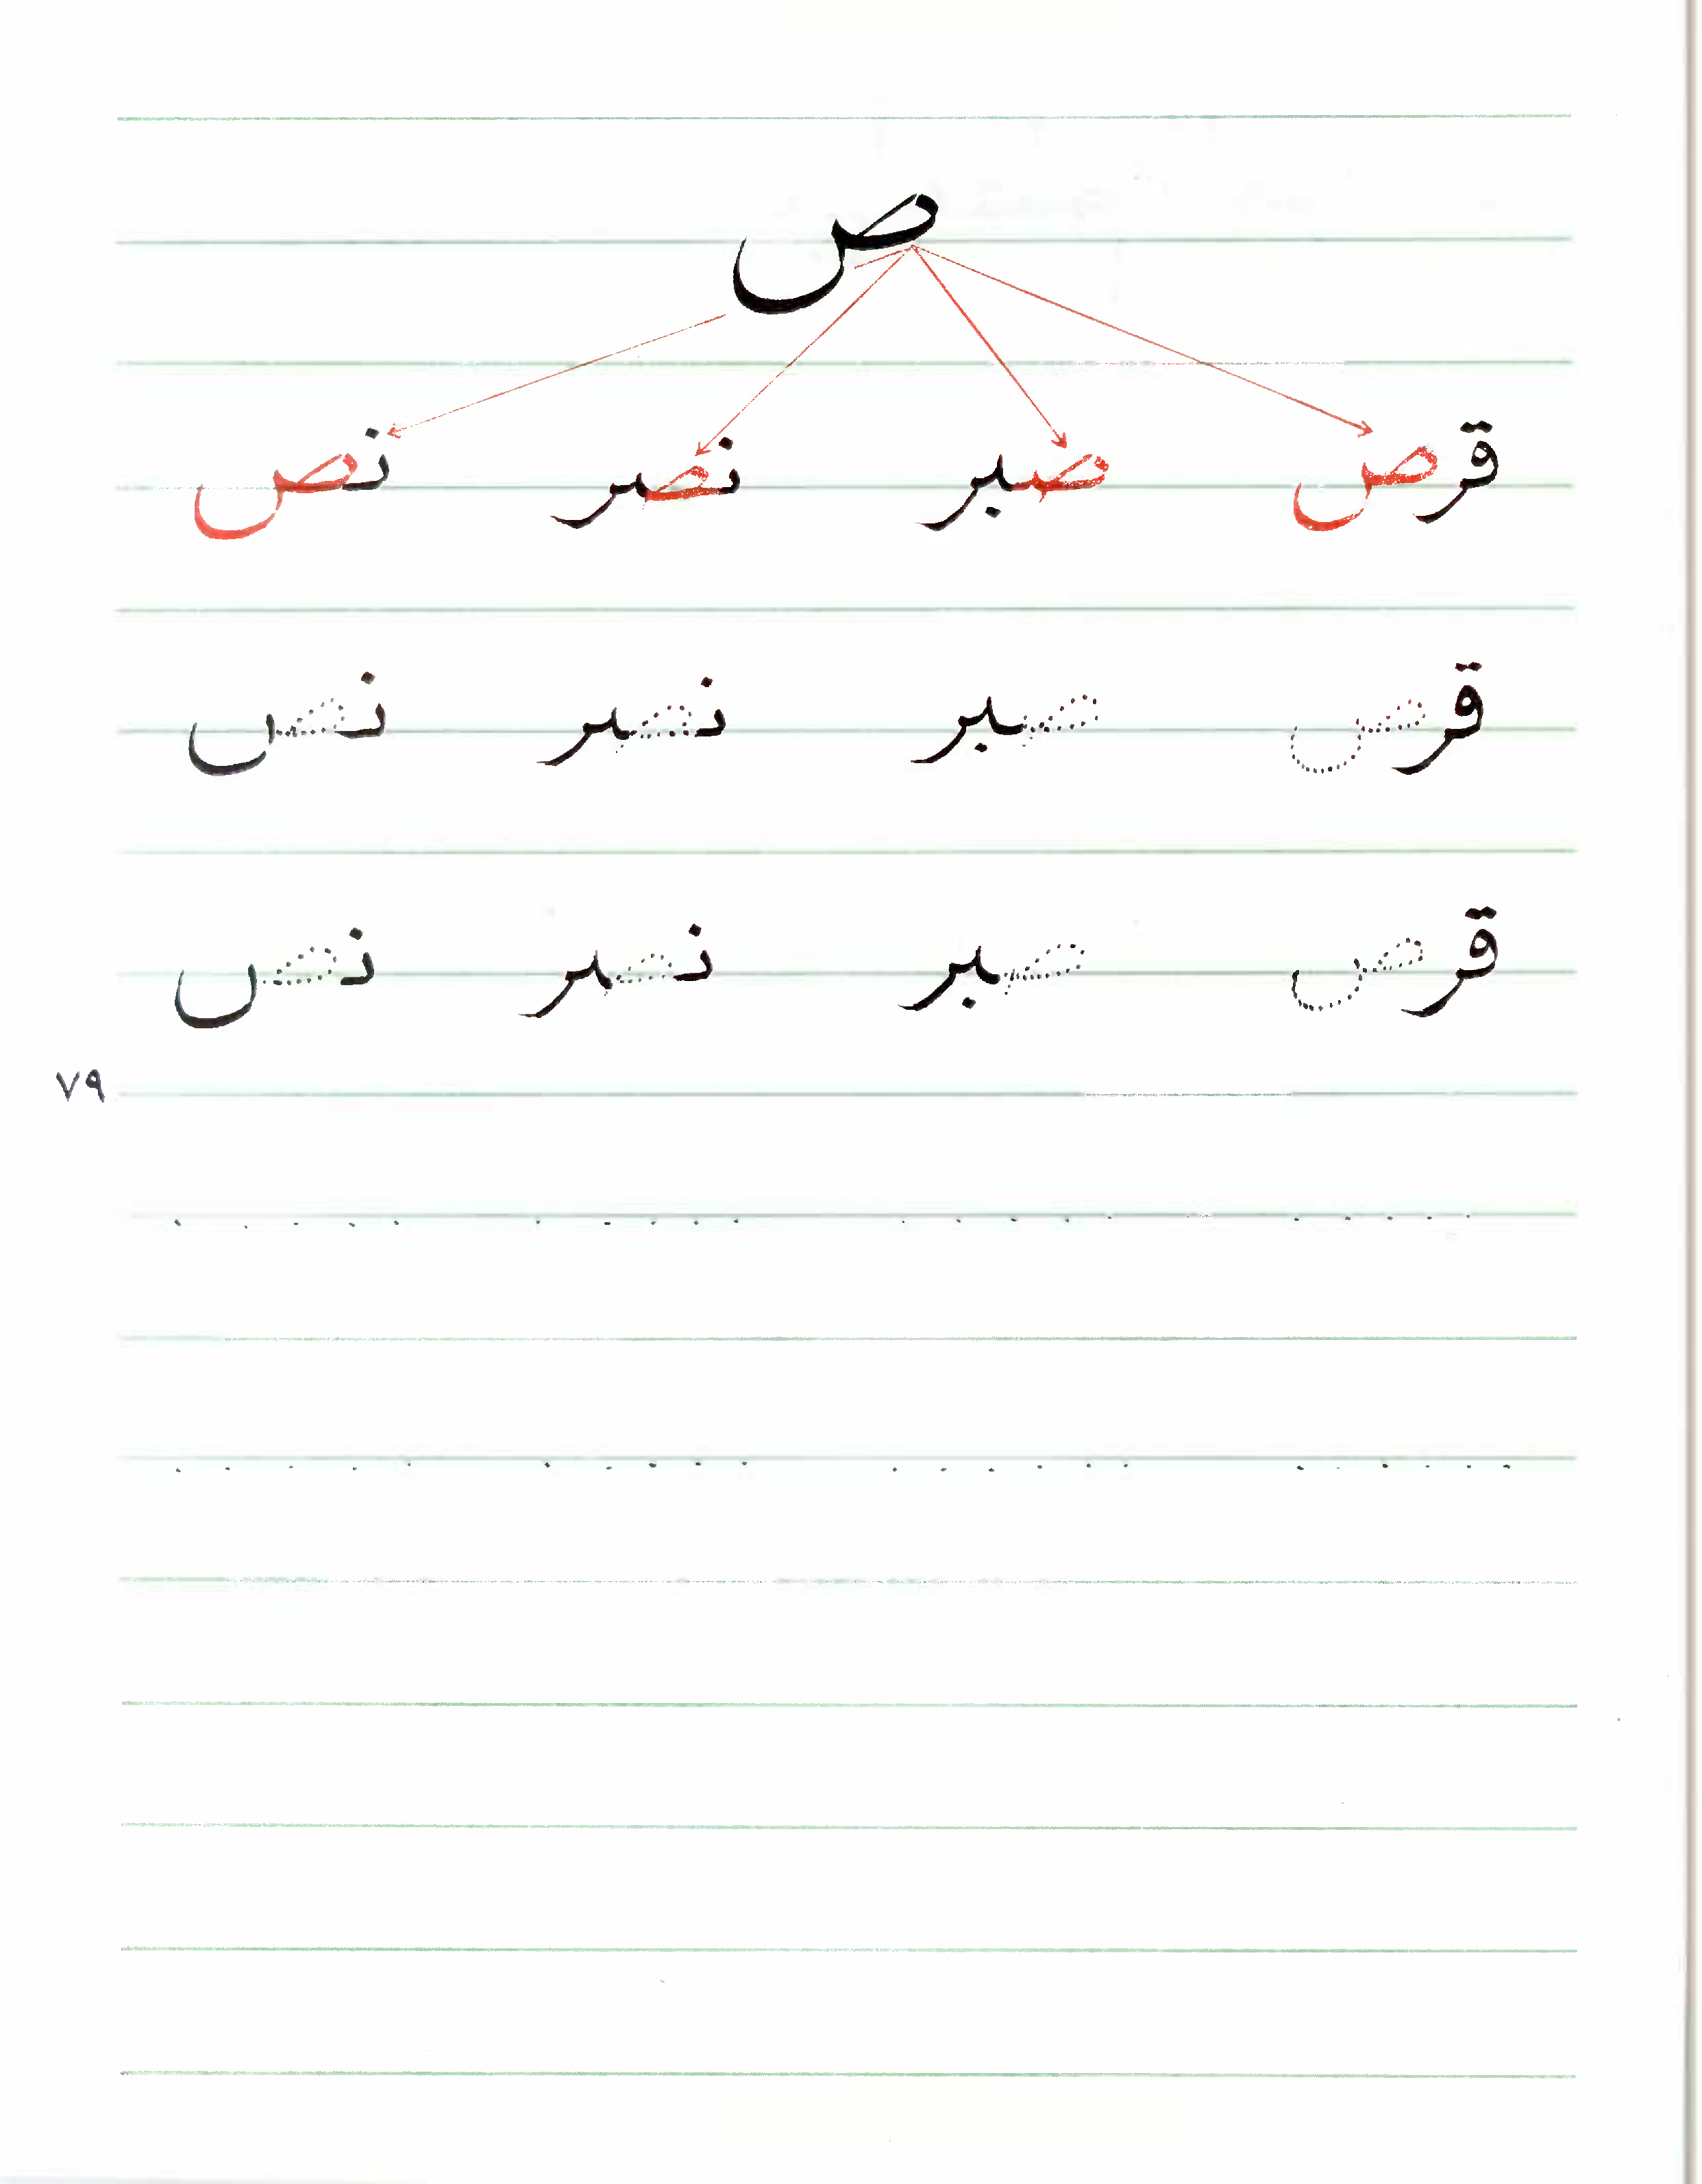 ص
قرص صبر نصر نص
قرص صبر نصر نص
قرص صبر نصر نص
٧٩